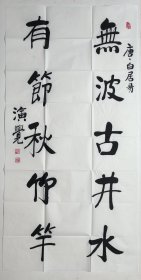 唐·白居易
無波古井水
有節秋竹竿
演覺